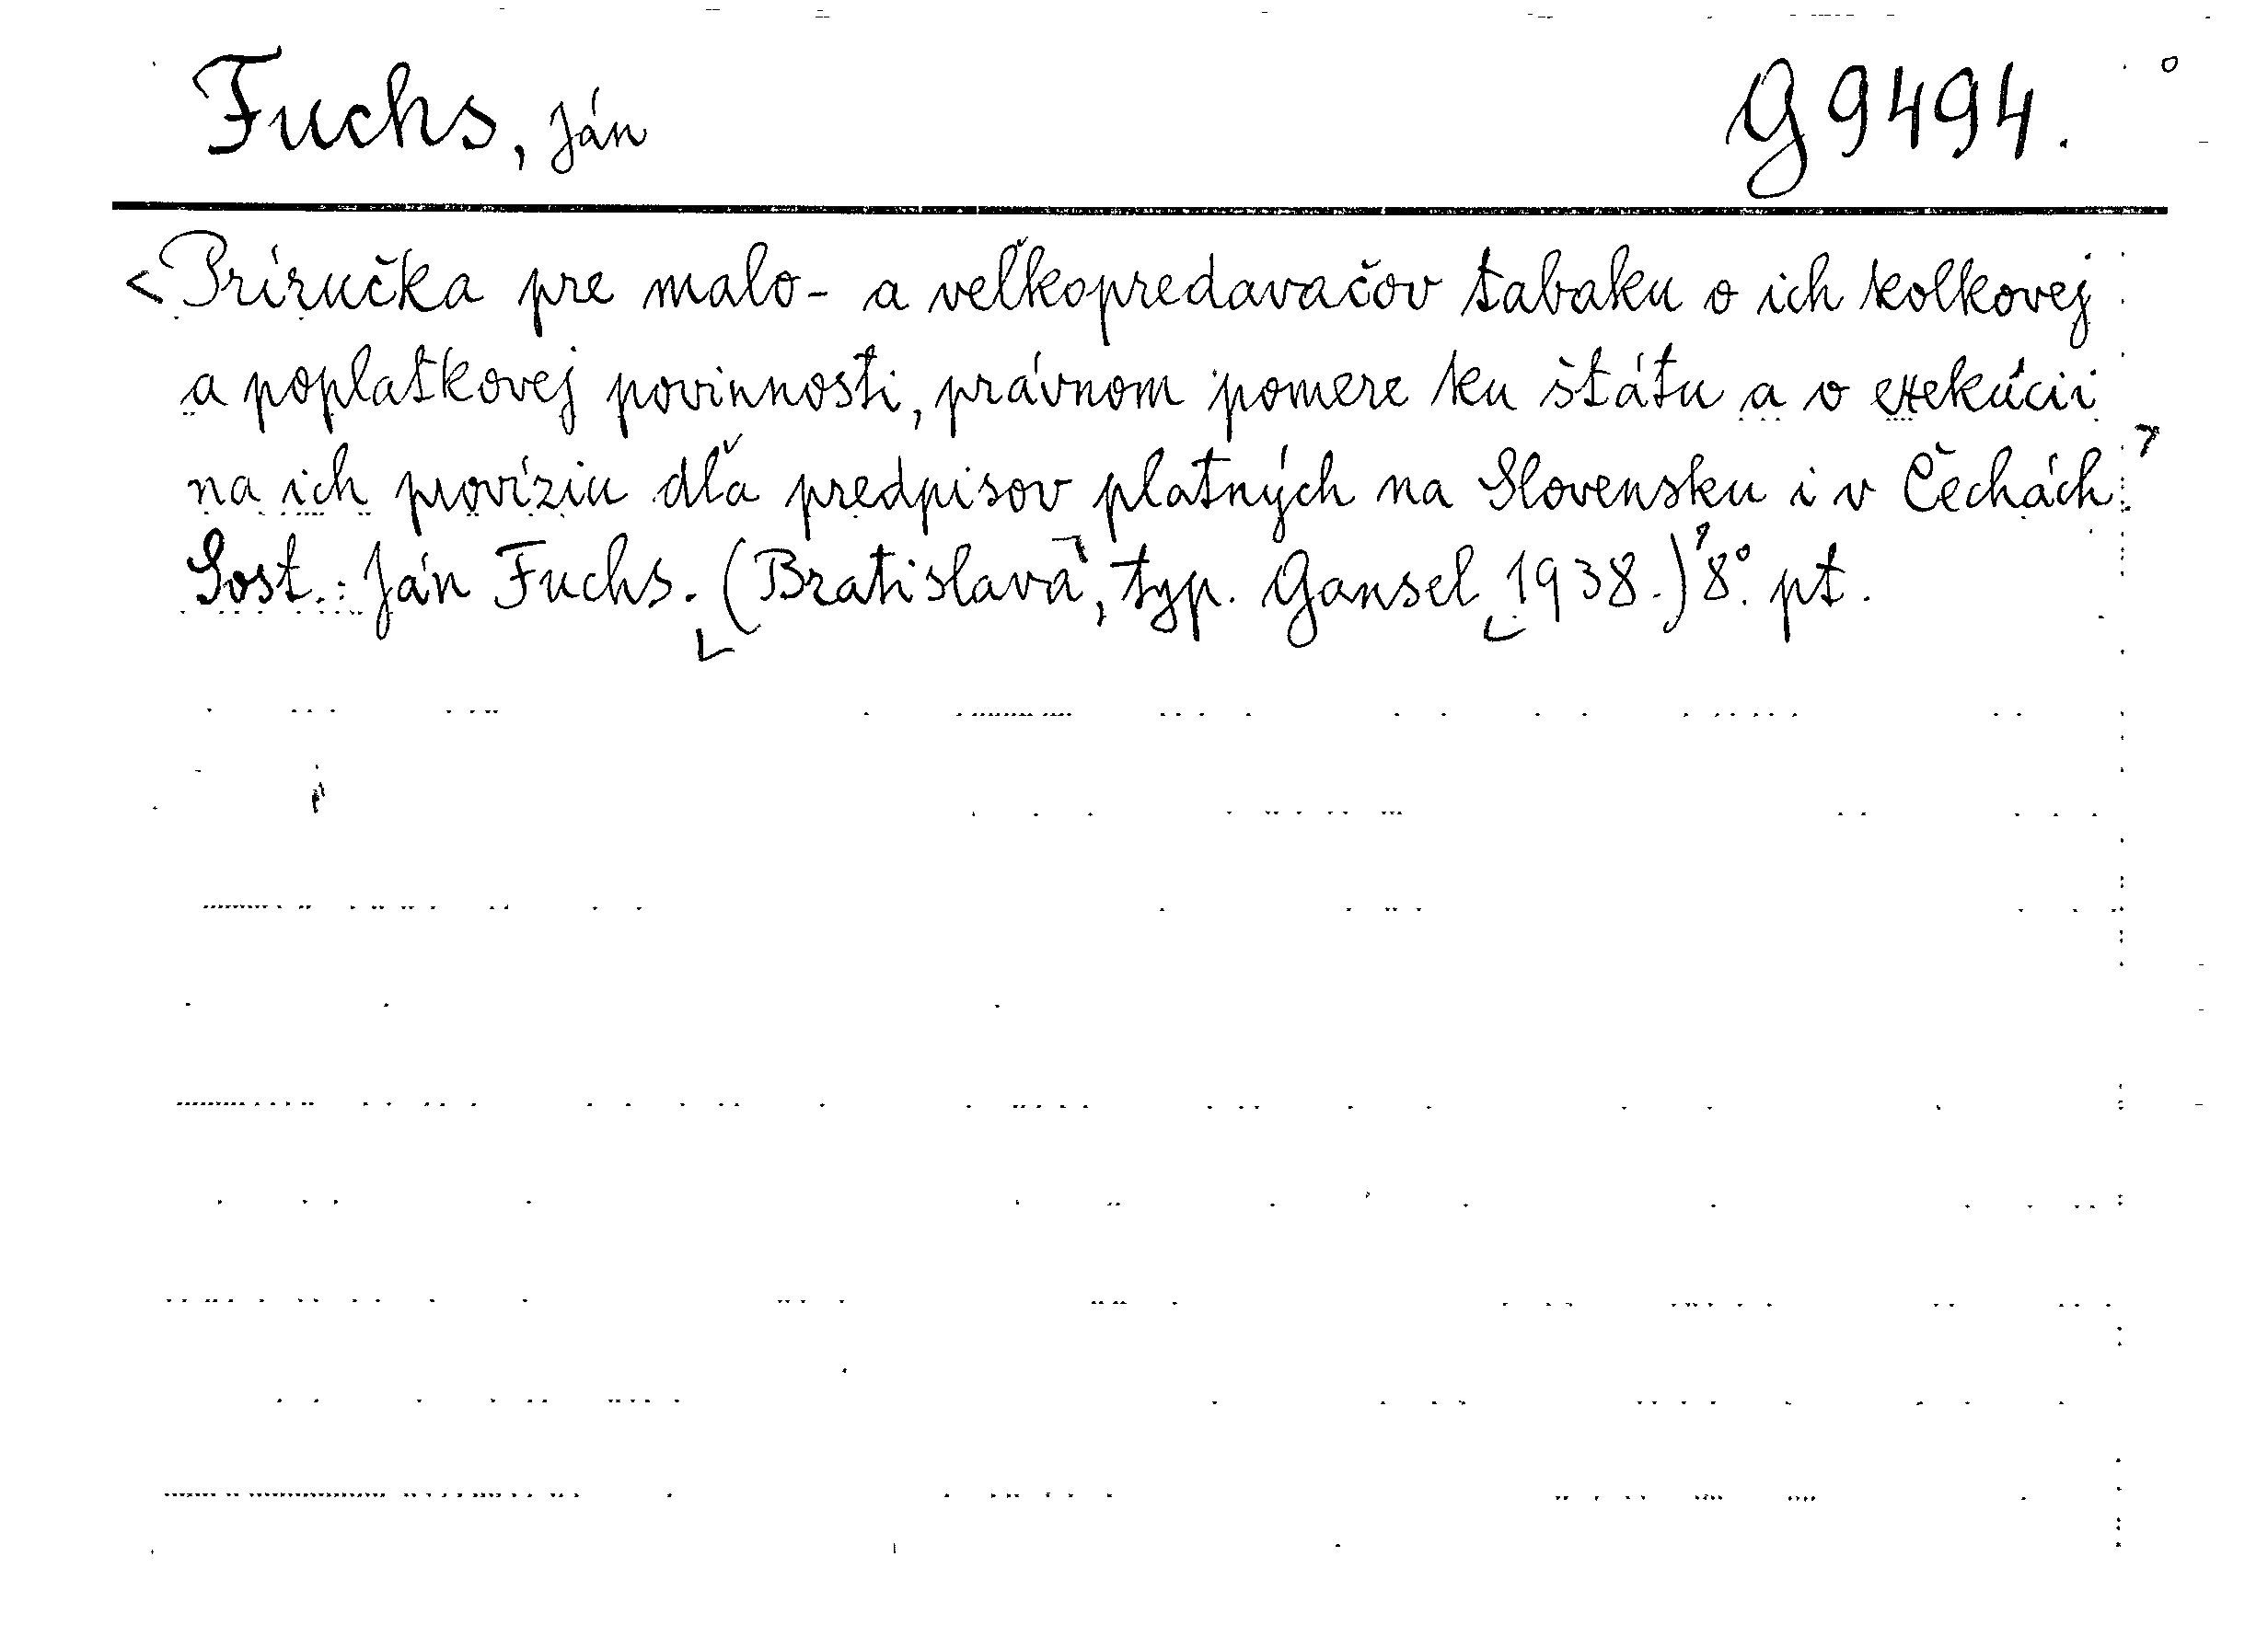 Fuchs, Ján G 9494.
<Príručka pre malo- a veľkopredavačov tabaku o ich kolkovej
a poplatkovej povinnosti, právnom pomere ku štátu a o exekúcii
na ich províziu dľa predpisov platných na Slovensku i v Čechách.>
Sost.: Ján Fuchs. (Bratislava, typ. Gansel 1938.) 8°. pt.